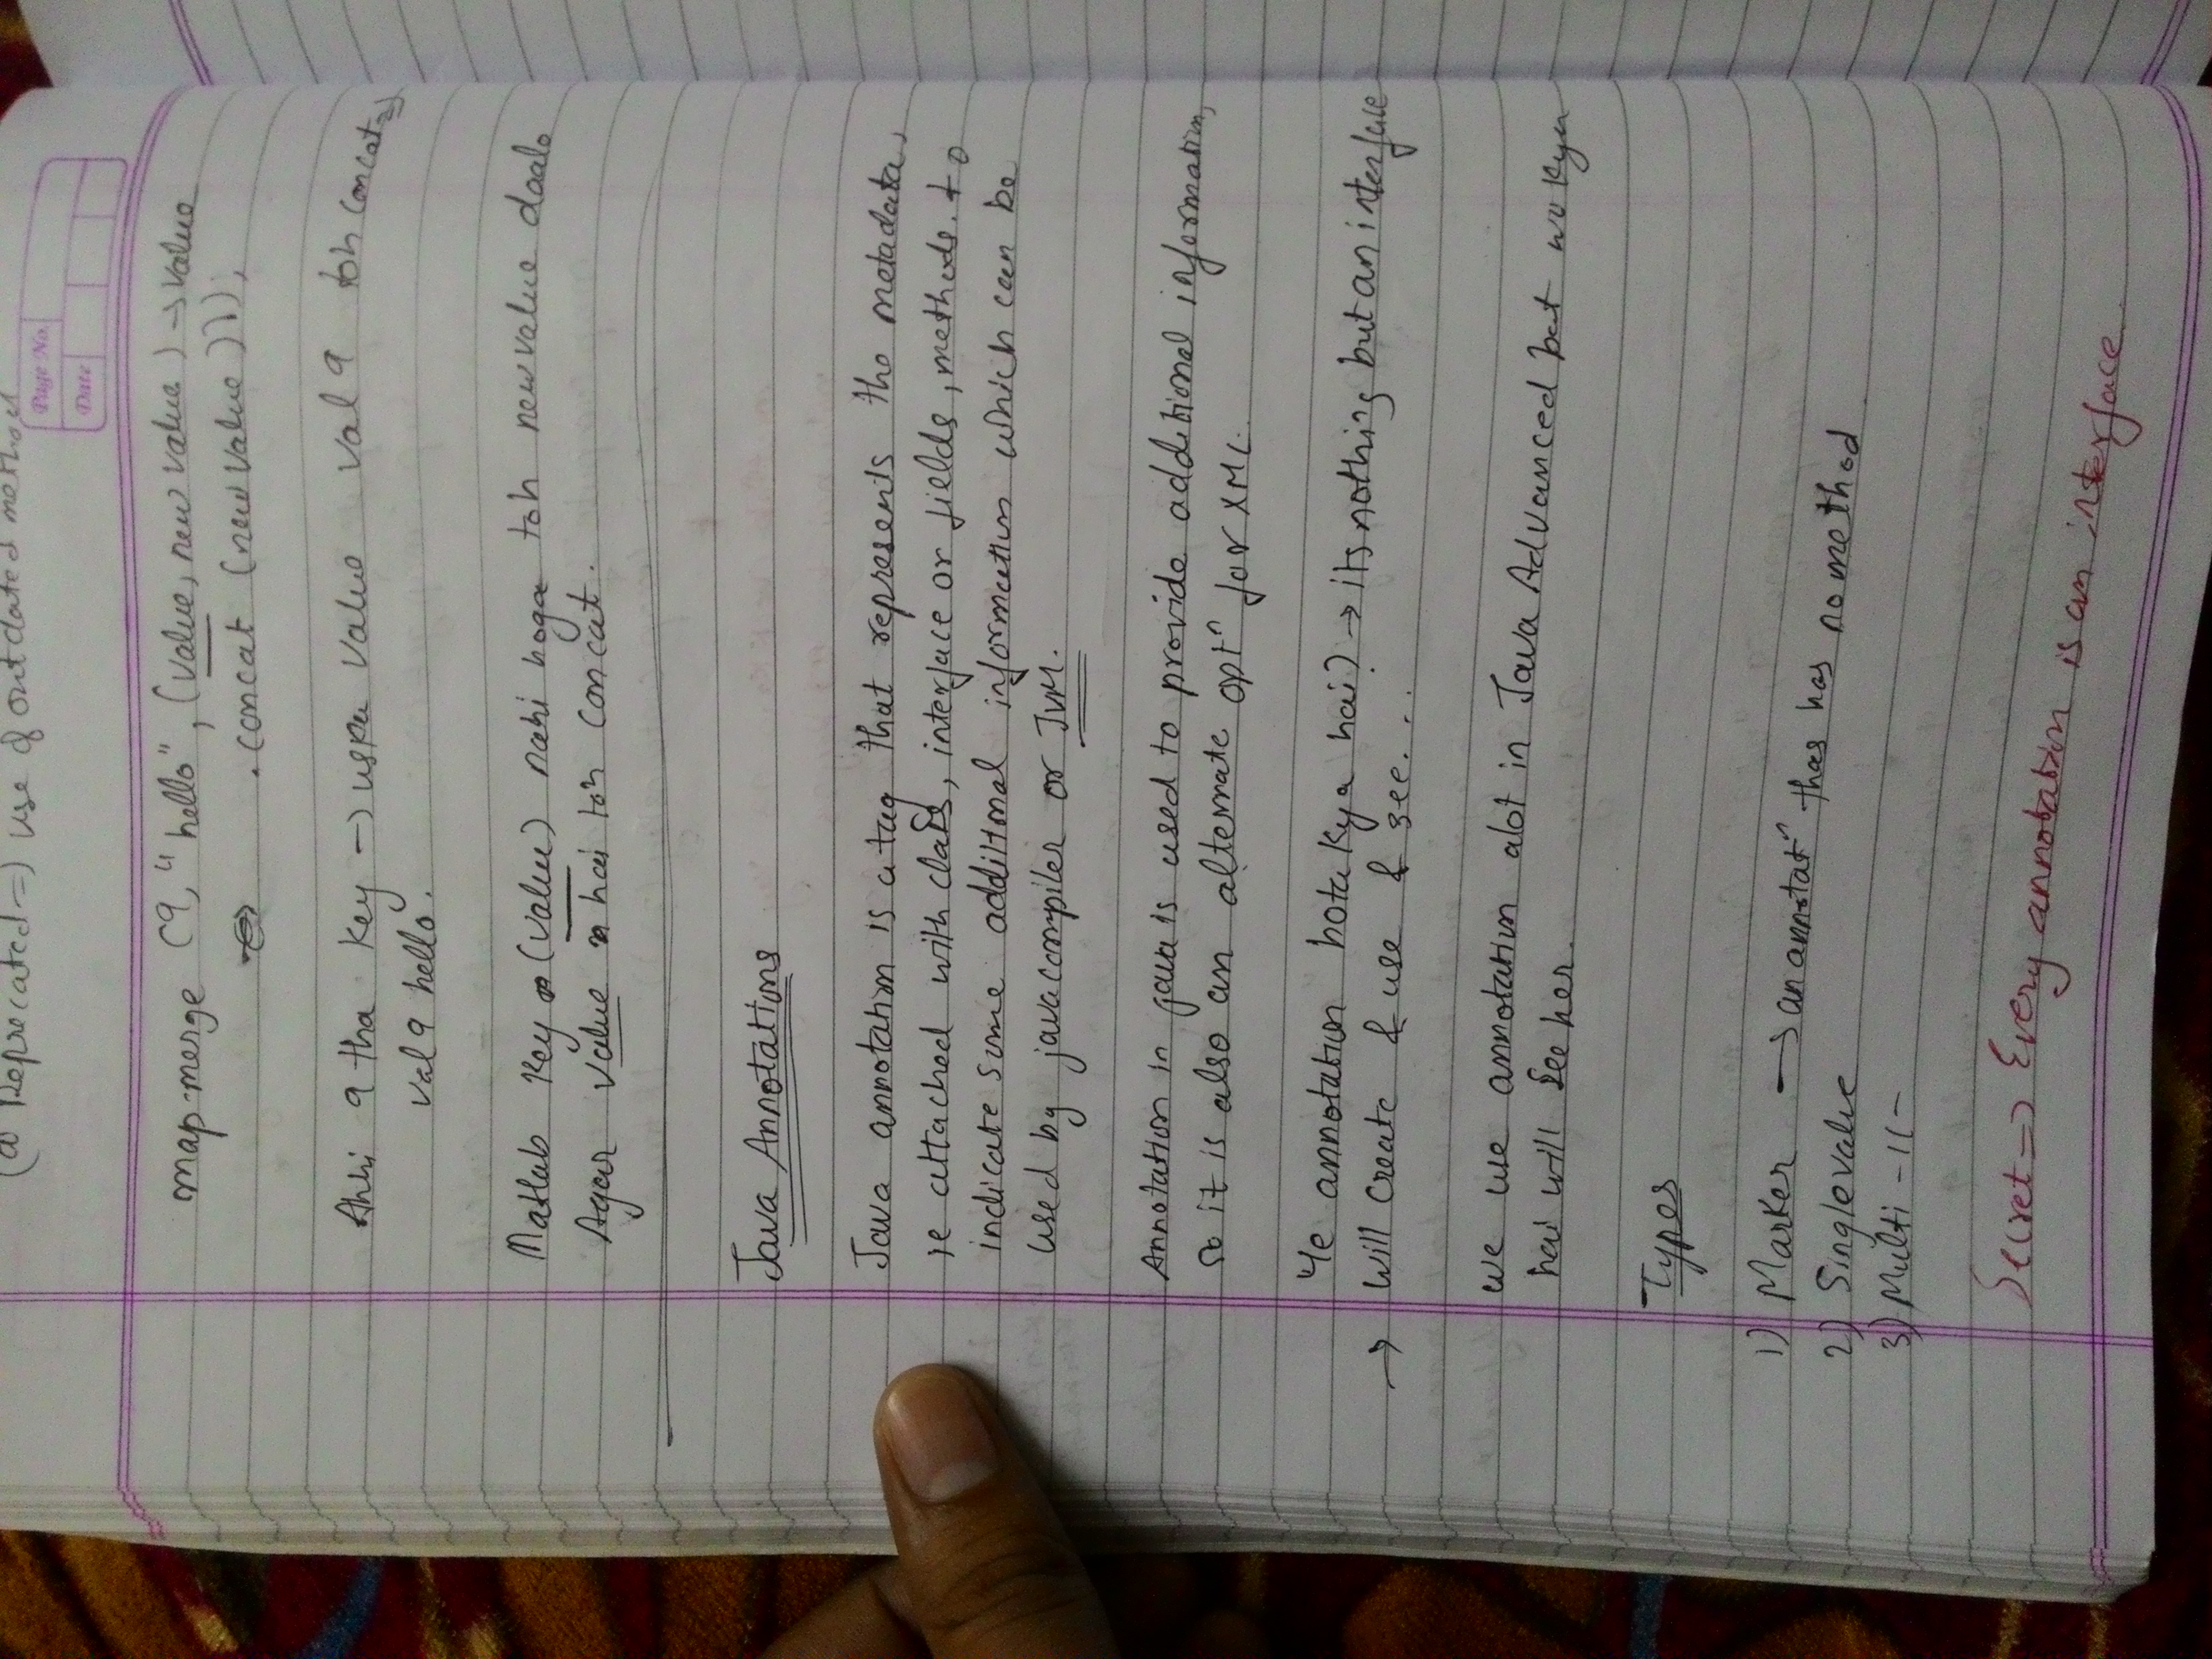 (@ Deprecated => use of outdated method
Page No.
Date
map.merge (9, "hello", (value, new value) → value
.concat (new value)));
Abhi 9 tha Key → uska Value val 9 toh concat =>
val 9 hello.
Matlab Key (value) nahi hoga toh newvalue daalo
Agar value hai toh concat.
Java Annotations
Java annotation is a tag that represents the metadata,
ie attached with class, interface or fields, methods. to
indicate some additional information which can be
used by java compiler or JVM.
Annotation in java is used to provide additional information,
so it is also an alternate optⁿ for XML.
Ye annotation hota Kya hai? → its nothing but an interface
→ Will create & use & see....
we use annotation alot in Java Advanced but wo Kya
hai will see her.
Types
1) Marker → an annotatⁿ thas has no method
2) Single value
3) Multi -11-
Secret => Every annotation is an interface.